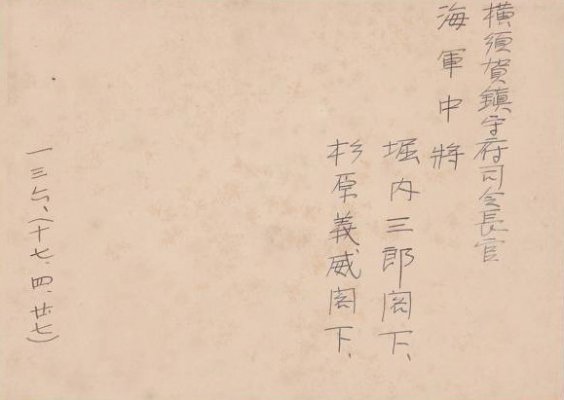 横須賀鎮守府司令長官
海軍中將
堀内三郎閣下、
杉原義威閣下、
一三六、(十七、四、廿七)